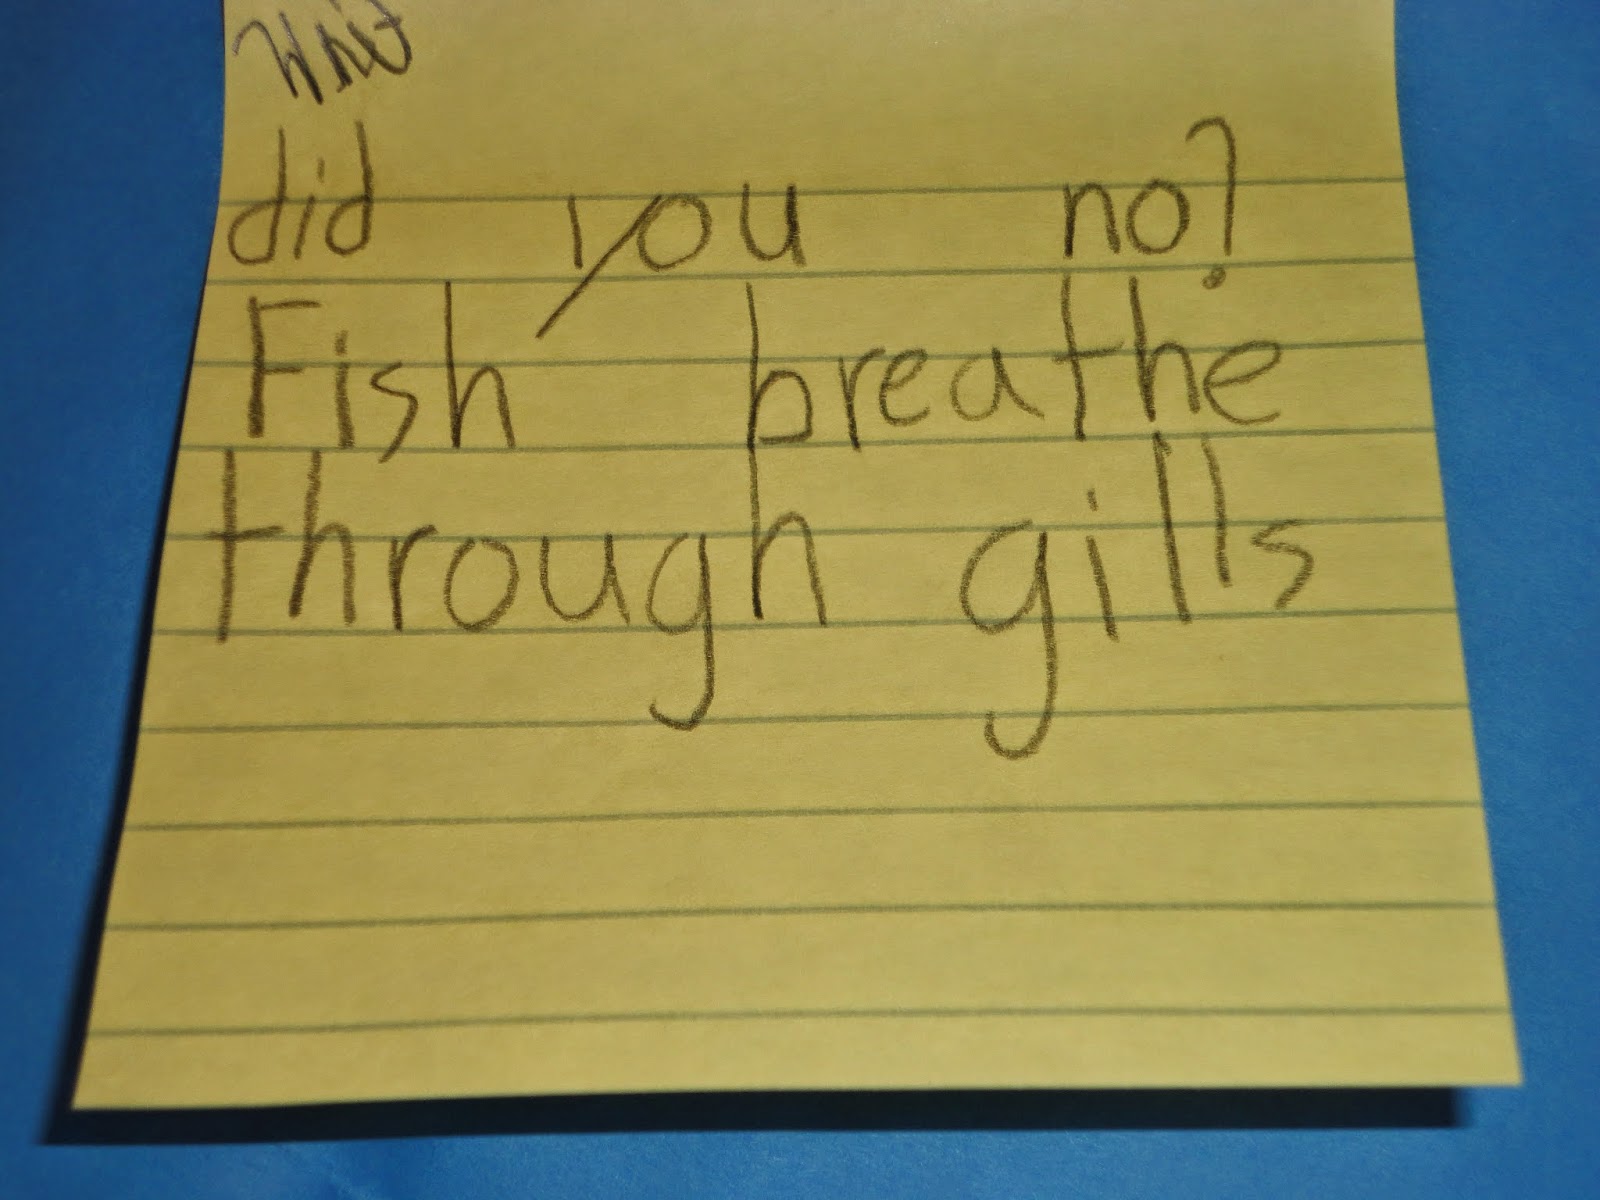 did you no?
Fish breathe
through gills